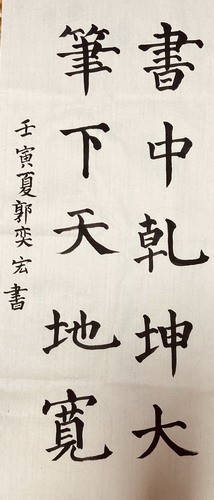 書中乾坤大
筆下天地寬
壬寅夏郭奕宏書